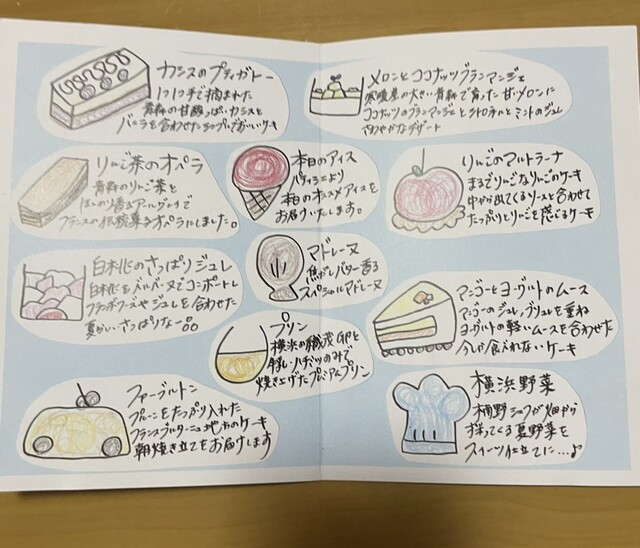 カシスのプティガトー
1つ1つ手で摘まれた
青森の甘酸っぱいカシスと
バニラを合わせた
りんご茶のオペラ
青森のりんご茶と
ほんのり香るアールグレイで
フランスの伝統菓子オペラにしました。
白桃のさっぱりジュレ
白桃をバーベーヌでコンポートし
フランボワーズやジュレを合わせた
夏らしいさっぱりな一品
ファーブルトン
プルーンをたっぷり入れた
フランスブルターニュ地方のケーキ
朝焼き立てをお届けします
本日のアイス
パティシエより
本日のオススメアイスを
お届けいたします。
マドレーヌ
焦がしバター香る
スペシャルマドレーヌ
プリン
横浜の
ハチミツのみで
焼き上げたプレミアムプリン
メロンとココナッツブランマンジェ
寒暖差の大きい青森で育った甘いメロンに
ココナッツのブランマンジェとシトロネルとミントのジュレ
さわやかなデザート
りんごのマルトラーナ
まるでりんごなりんごのケーキ
中から出てくるソースと合わせて
たっぷりとりんごを感じるケーキ
マンゴーとヨーグルトのムース
マンゴーのジュレ、ブリュレを重ね
ヨーグルトの軽いムースを合わせた
今しか食べれないケーキ
横浜野菜
シェフが畑から
採ってくる夏野菜を
スイーツ仕立てに…♪